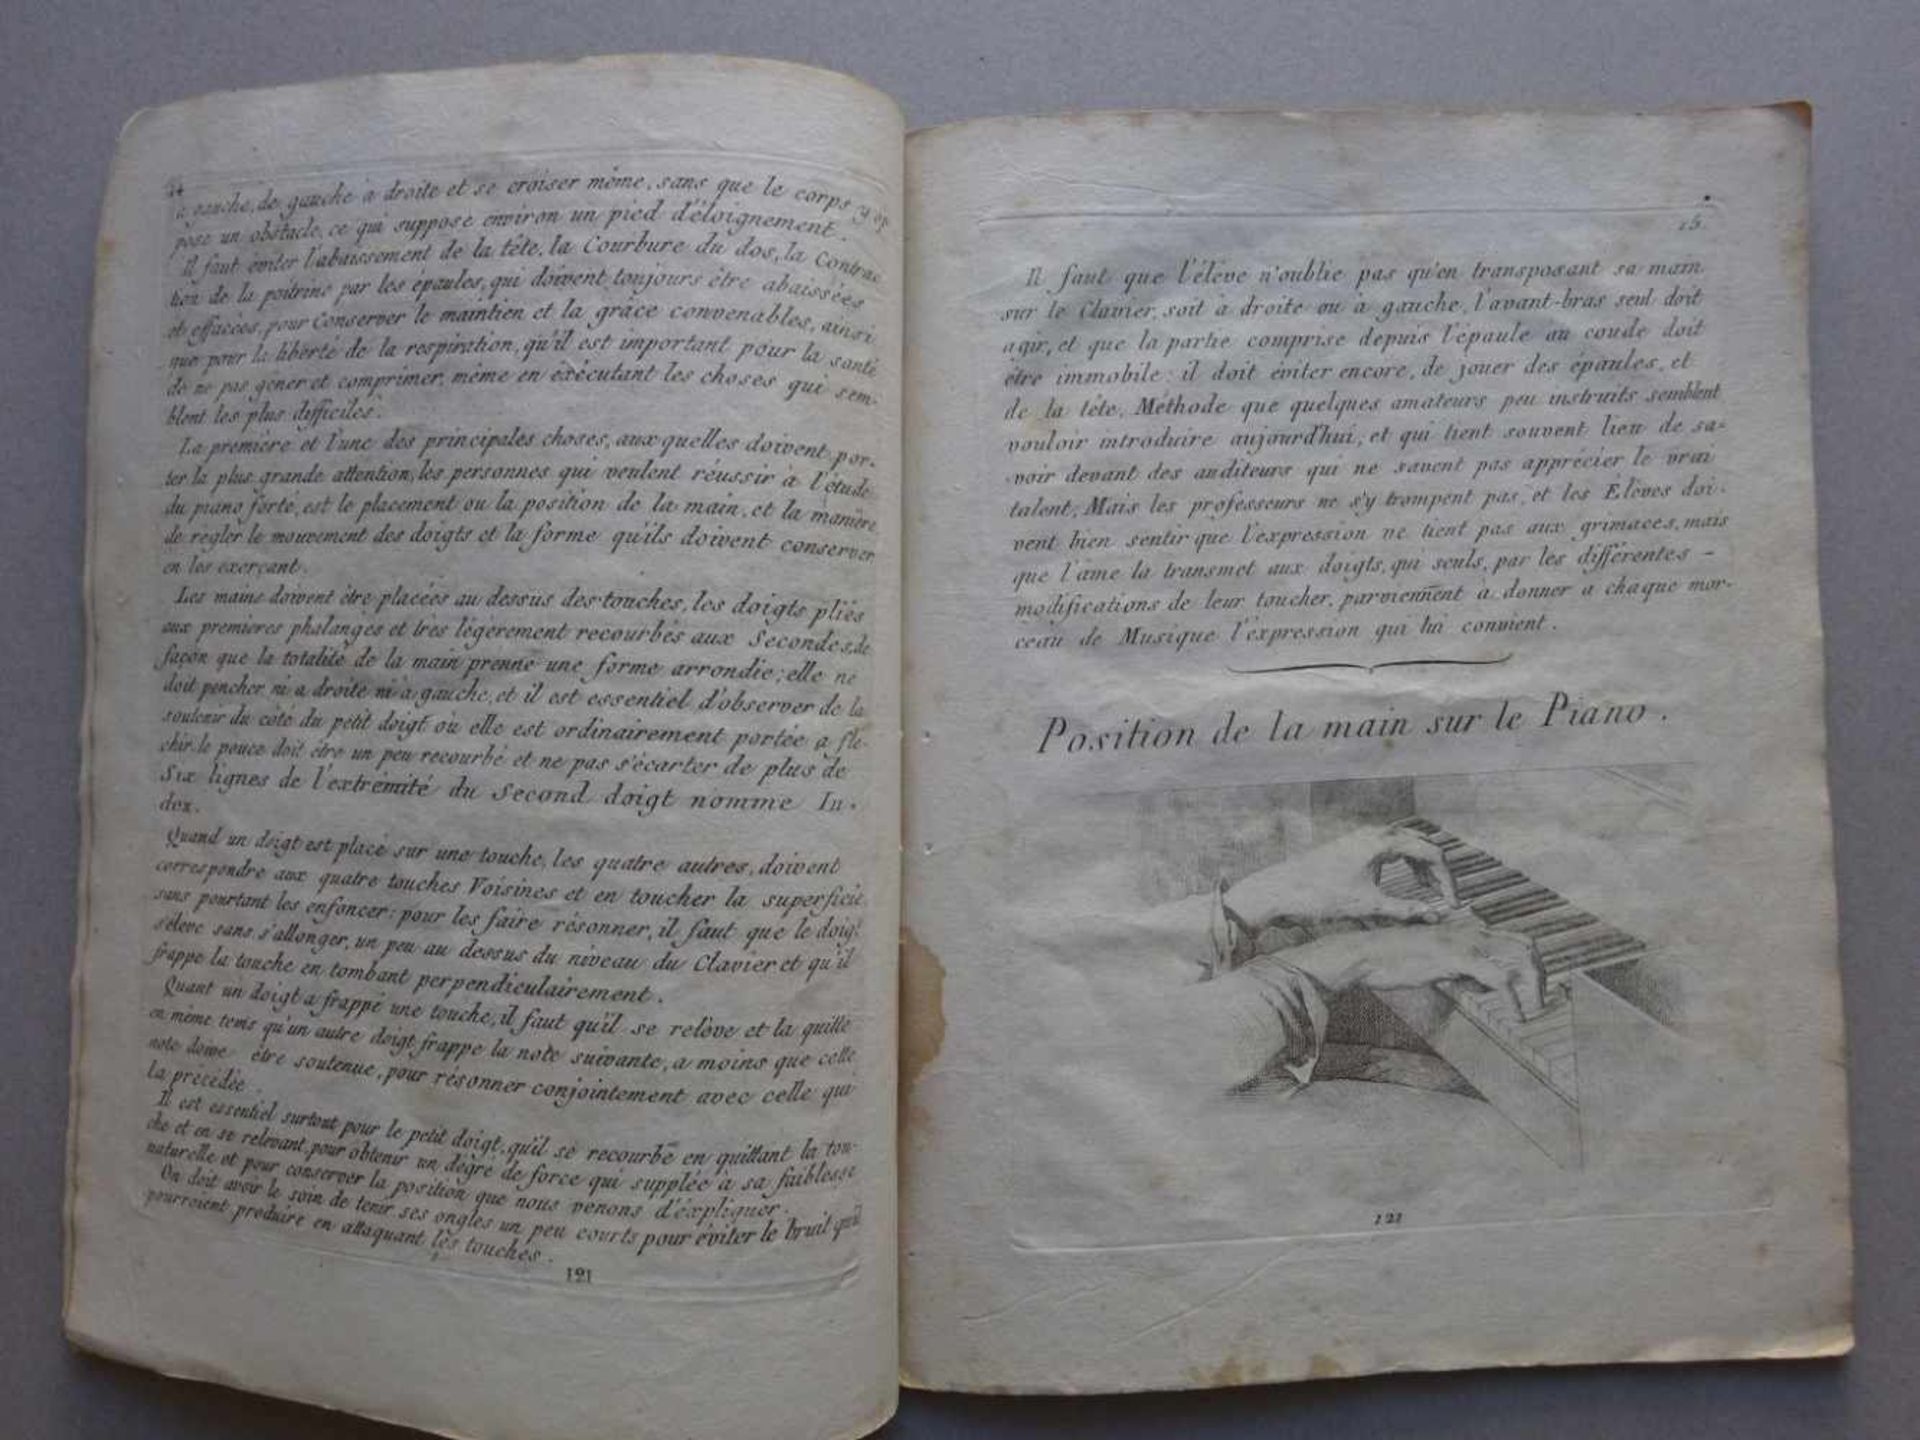 14
à gauche, de gauche à droite et se croiser même, sans que le corps y op
pose un obstacle, ce qui suppose environ un pied d'éloignement.
Il faut éviter l'abaissement de la tête, la Courbure du dos, la contrac
tion de la poitrine par les épaules, qui doivent toujours être abaissées
et effacées, pour Conserver le maintien et la grâce convenables, ainsi
que pour la liberté de la respiration, qu'il est important pour la santé
de ne pas gêner et comprimer, même en éxécutant les choses qui sem-
blent les plus difficiles.
La première et l'une des principales choses, aux quelles doivent por-
ter la plus grande attention, les personnes qui veulent réussir à l'étude
du piano forté, est le placement ou la position de la main, et la manière
de régler le mouvement des doigts et la forme qu'ils doivent conserver
en les exerçant.
Les mains doivent être placées au dessus des touches, les doigts pliés
aux premieres phalanges et très légèrement recourbés aux Secondes, de
façon que la totalité de la main prenne une forme arrondie; elle ne
doit pencher ni a droite ni à gauche, et il est essentiel d'observer de la
soutenir du côté du petit doigt où elle est ordinairement portée a flé-
chir. le pouce doit être un peu recourbé et ne pas s'écarter de plus de
Six lignes de l'extrémité du Second doigt nommé In-
dex.
Quand un doigt est placé sur une touche, les quatre autres, doivent
correspondre aux quatre touches Voisines et en toucher la superficie
sans pourtant les enfoncer: pour les faire résonner, il faut que le doigt
s'élève sans s'allonger, un peu au dessus du niveau du Clavier et qu'il
frappe la touche en tombant perpendiculairement.
Quant un doigt a frappé une touche, il faut qu'il se relève et la quitte
en même tems qu'un autre doigt frappe la note suivante, a moins que celle
note doive être soutenue, pour résonner conjointement avec celle qui
la précédée.
Il est essentiel surtout pour le petit doigt, qu'il se recourbe en quittant la tou-
che et en se relevant, pour obtenir un dégré de force qui supplée à sa faiblesse
naturelle et pour conserver la position que nous venons d'éxpliquer.
On doit avoir le soin de tenir ses ongles un peu courts pour éviter le bruit qu'il
pourroient produire en attaquant les touches.
121
15.
Il faut que l'élève n'oublie pas qu'en transposant sa main
sur le Clavier, soit à droite ou à gauche, l'avant-bras seul doit
agir, et que la partie comprise depuis l'épaule au coude doit
être immobile: il doit éviter encore, de jouer des épaules, et
de la tête, Méthode que quelques amateurs peu instruits semblent
vouloir introduire aujourd'hui, et qui tient souvent lieu de sa-
voir devant des auditeurs qui ne savent pas apprécier le vrai
talent, Mais les professeurs ne s'y trompent pas, et les Élèves doi-
vent bien sentir que l'expression ne tient pas aux grimaces, mais
que l'âme la transmet aux doigts, qui seuls, par les différentes -
modifications de leur toucher, parviennent à donner a chaque mor-
ceau de Musique l'expression qui lui convient.
Position de la main sur le Piano.
121